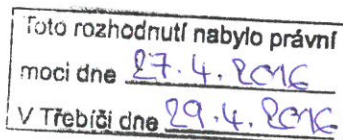 Toto rozhodnutí nabylo právní
moci dne 27.4.2016
V Třebíči dne 29.4.2016